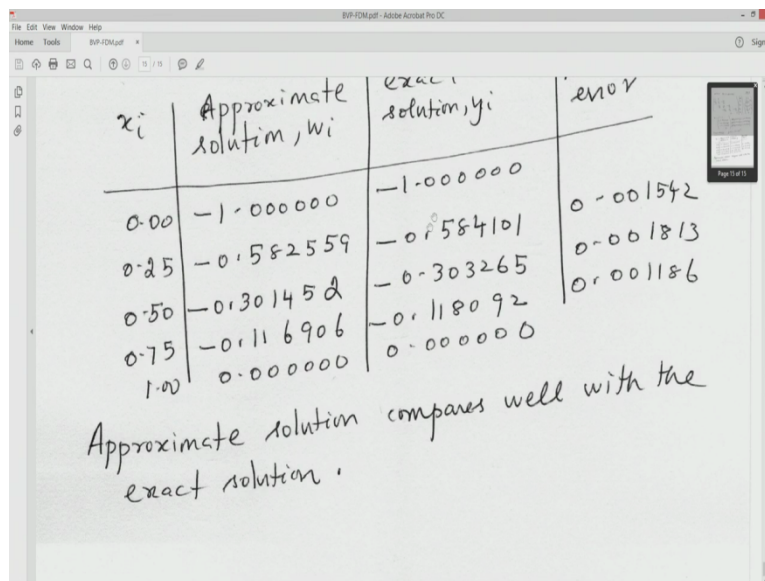 BVP-FDM.pdf - Adobe Acrobat Pro DC
File Edit View Window Help
Home Tools BVP-FDM.pdf × Sign
15 / 15
xi Approximate solution, wi exact solution, yi error
0.00 -1.000000 -1.000000
0.25 -0.582559 -0.584101 0.001542
0.50 -0.301452 -0.303265 0.001813
0.75 -0.116906 -0.118092 0.001186
1.00 0.000000 0.000000
Approximate solution compares well with the
exact solution.
Page 15 of 15